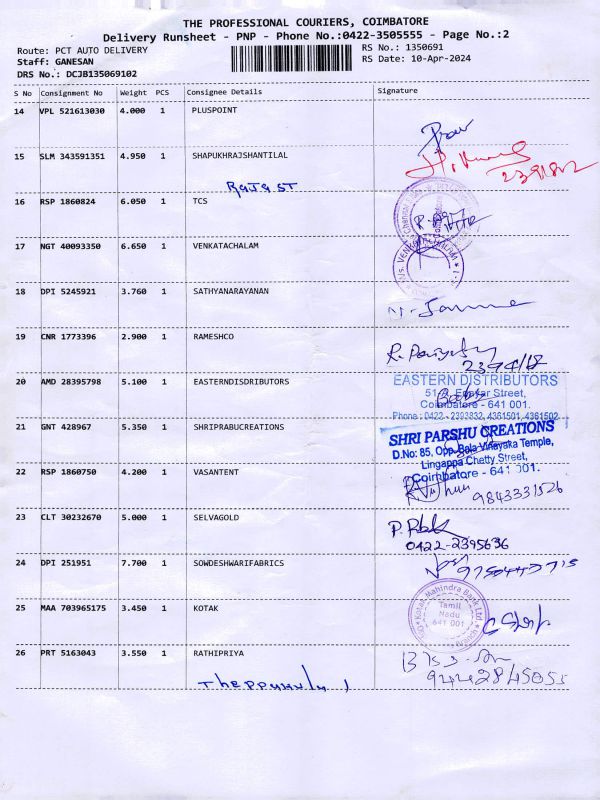 THE PROFESSIONAL COURIERS, COIMBATORE
Delivery Runsheet - PNP - Phone No.:0422-3505555 - Page No.:2
Route: PCT AUTO DELIVERY
RS No.: 1350691
Staff: GANESAN
RS Date: 10-Apr-2024
DRS No.: DCJB135069102
S No Consignment No Weight PCS Consignee Details Signature
14 VPL 521613030 4.000 1 PLUSPOINT
15 SLM 343591351 4.950 1 SHAPUKHRAJSHANTILAL
Raja ST
16 RSP 1860824 6.050 1 TCS
17 NGT 40093350 6.650 1 VENKATACHALAM
18 DPI 5245921 3.760 1 SATHYANARAYANAN
19 CNR 1773396 2.900 1 RAMESHCO
20 AMD 28395798 5.100 1 EASTERNDISDRIBUTORS
EASTERN DISTRIBUTORS
Street,
Coimbatore - 641 001.
Phone : 0422 - 2393832, 4361501, 4361502
21 GNT 428967 5.350 1 SHRIPRABUCREATIONS
SHRI PARSHU CREATIONS
D.No: 85, Opp. Bala Vinayaka Temple,
Lingappa Chetty Street,
Coimbatore - 641 001.
22 RSP 1860750 4.200 1 VASANTENT
9843331526
23 CLT 30232670 5.000 1 SELVAGOLD
0422-2395636
24 DPI 251951 7.700 1 SOWDESHWARIFABRICS
25 MAA 703965175 3.450 1 KOTAK
Kotak Mahindra Bank Ltd.
Tamil
Nadu
641 001
26 PRT 5163043 3.550 1 RATHIPRIYA